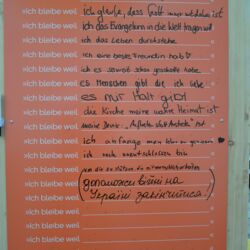 »Ich bleibe weil ich glaube, dass Gott
»Ich bleibe weil ich das Evangelium in die Welt tragen will
»Ich bleibe weil ich das Leben durchstehe
»Ich bleibe weil ich eine beste Freundin hab ♡
»Ich bleibe weil ich es soweit schon geschafft habe
»Ich bleibe weil es Menschen gibt die ich liebe
»Ich bleibe weil es nur Halt gibt
»Ich bleibe weil die Kirche meine wahre Heimat ist
»Ich bleibe weil meine Devise „Aufstehn statt Austeh“ ist
»Ich bleibe weil ich anfange mein leben zu
»Ich bleibe weil ich noch unentschlossen bin
»Ich bleibe weil um die
»Ich bleibe weil (допоможеш війні на
»Ich bleibe weil Україні закінчитися!)
»Ich bleibe weil
»Ich bleibe weil
»Ich bleibe weil